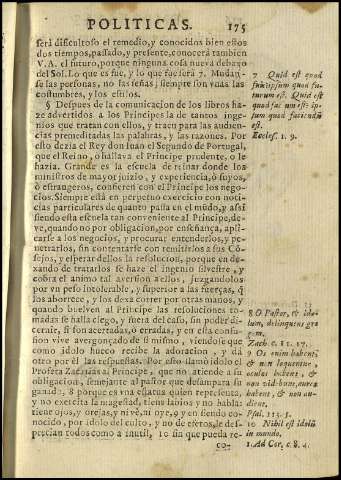 POLITICAS. 175
será dificultoso el remedio, y conocidos bien estos
dos tiempos, passado, y presente, conocerà tambien
V.A. el futuro, porque ninguna cosa nueva debaxo
del Sol. Lo que es fue, y lo que fue será 7. Mudan-
se las personas, no las scenas, siempre son vnas las
costumbres, y los estilos.
§ Despues de la comunicacion de los libros ha-
ze advertidos a los Principes la de tantos inge-
nios que tratan con ellos, y traen para las audien-
cias premeditadas las palabras, y las razones. Por
esto dezia el Rey don Iuan el Segundo de Portugal,
que el Reino, o hallava al Principe prudente, o le
hazia. Grande es la escuela de reinar donde los
ministros de mayor juizio, y experiencia, ò suyos,
ò estrangeros, confieren con el Principe los nego-
cios. Siempre está en perpetuo exercicio con noti-
cias particulares de quanto passa en el mūdo, y assi
siendo esta escuela tan conveniente al Principe, de-
ve, quando no por obligacion, por enseñança, apli-
carse a los negocios, y procurar entenderlos, y pe-
netrarlos, sin contentarse con remitirlos a sus Cō-
sejos, y esperar dellos la resolucion, porque en de-
xando de tratarlos se haze el ingenio silvestre, y
cobra el animo tal aversion a ellos, juzgandolos
por vn peso intolerable, y superior a sus fuerças, q̄
los aborrece, y los dexa correr por otras manos, y
quando buelven al Principe las resoluciones to-
madas se halla ciego, y fuera del caso, sin poder dis-
cernir, si son acertadas, ò erradas, y en esta confu-
sion vive avergonçado de si mismo, viendose que
como idolo hueco recibe la adoracion, y da
otro por èl las respuestas. Por esto llamò idolo el
Profeta Zacarias al Principe, que no atiende a su
obligacion, semejante al pastor que desampara su
ganado, 8 porque es vna estatua quien representa,
y no exercita la magestad, tiene labios y no habla:
tiene ojos, y orejas, y ni vè, ni oye, 9 y en siendo co-
nocido, por idolo del culto, y no de efetos, le des-
precian todos como a inutil, 10 sin que pueda re-
co-
7 Quid est quod
fuit? ipsum quod fu-
turum est. Quid est
quod factum est? ip-
sum quod faciendū
est.
Eccles. 1. 9.
8 O Pastor, & ido-
lum, delinquens gre
gem.
Zach. c. 11. 17.
9 Os enim habent,
& non loquentur,
oculos habent, &
non videbunt, aures
habent, & non au-
dient.
Psal. 113. 5.
10 Nihil est idolū
in mundo.
1. Ad Cor. c. 8. 4.